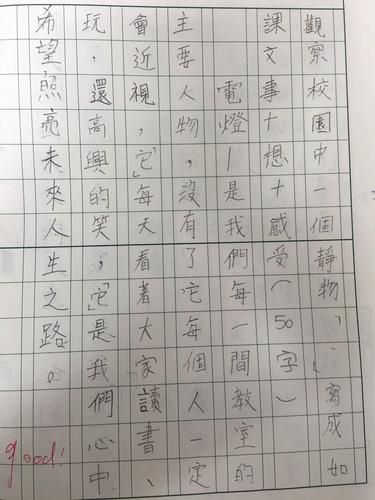 觀察校園中一個靜物「」,寫成如
課文事+想+感受(50字)
電燈|是我們每一間教室的
主要人物,沒有了它每個人一定
會近視,「它」每天看著大家讀書、
玩,還高興的笑,「它」是我們心中
希望照亮未來人生之路。
good!